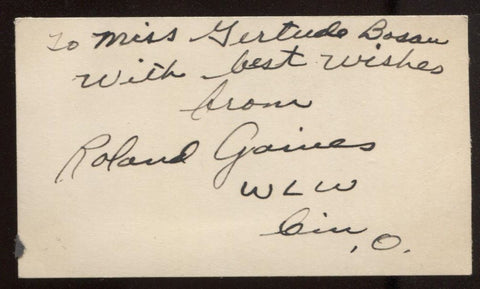 To Miss Gertrude Bosau
With best wishes
from
Roland Gaines
WLW
Cin, O.